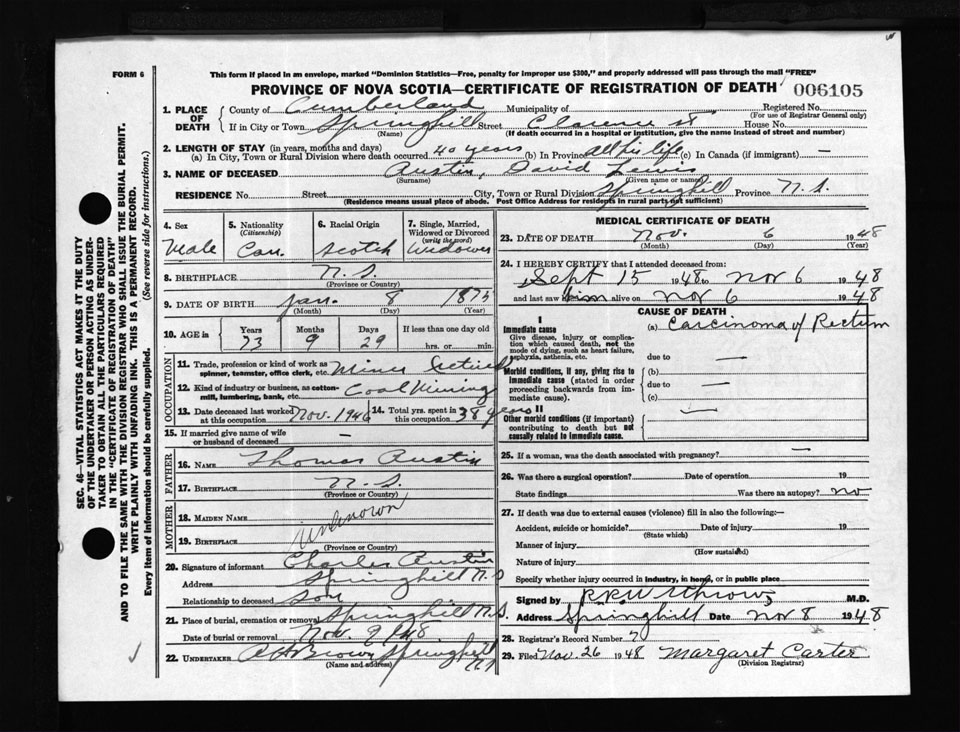 FORM 6
This form if placed in an envelope, marked "Dominion Statistics—Free, penalty for improper use $300," and properly addressed will pass through the mail "FREE"
PROVINCE OF NOVA SCOTIA—CERTIFICATE OF REGISTRATION OF DEATH 006105
1. PLACE OF DEATH County of Cumberland Municipality of Registered No. (For use of Registrar General only)
If in City or Town Springhill (Name) Street Clarence St. House No.
(If death occurred in a hospital or institution, give the name instead of street and number)
2. LENGTH OF STAY (in years, months and days)
(a) In City, Town or Rural Division where death occurred 40 years (b) In Province All his life (c) In Canada (if immigrant) —
3. NAME OF DECEASED Austin, David Lewis
(Surname) (Given name or names)
RESIDENCE No. Street City, Town or Rural Division Springhill Province N.S.
(Residence means usual place of abode. Post Office Address for residents in rural parts not sufficient)
4. Sex Male
5. Nationality (Citizenship) Can.
6. Racial Origin Scotch
7. Single, Married, Widowed or Divorced (write the word) Widower
8. BIRTHPLACE N.S.
(Province or Country)
9. DATE OF BIRTH Jan. 8 1875
(Month) (Day) (Year)
10. AGE in Years Months Days If less than one day old
73 9 29 hrs. or min.
OCCUPATION
11. Trade, profession or kind of work as spinner, teamster, office clerk, etc. Miner Retired
12. Kind of industry or business, as cotton-mill, lumbering, bank, etc. Coal Mining
13. Date deceased last worked at this occupation Nov. 1946 14. Total yrs. spent in this occupation 38 years
15. If married give name of wife or husband of deceased —
FATHER
16. NAME Thomas Austin
17. BIRTHPLACE N.S.
(Province or Country)
MOTHER
18. MAIDEN NAME
19. BIRTHPLACE Unknown
(Province or Country)
20. Signature of informant Charles Austin
Address Springhill N.S
Relationship to deceased Son
21. Place of burial, cremation or removal Springhill N.S
Date of burial or removal Nov. 9 1948
22. UNDERTAKER Brown Springhill N.S
(Name and address)
MEDICAL CERTIFICATE OF DEATH
23. DATE OF DEATH Nov. 6 1948
(Month) (Day) (Year)
24. I HEREBY CERTIFY that I attended deceased from:
Sept 15 1948 to Nov 6 1948
and last saw him alive on Nov 6 1948
CAUSE OF DEATH
I
Immediate cause (a) Carcinoma of Rectum
Give disease, injury or complication which caused death, not the mode of dying, such as heart failure, asphyxia, asthenia, etc.
due to —
Morbid conditions, if any, giving rise to immediate cause (stated in order proceeding backwards from immediate cause). (b)
due to —
(c)
II
Other morbid conditions (if important) contributing to death but not causally related to immediate cause. —
25. If a woman, was the death associated with pregnancy? —
26. Was there a surgical operation? Date of operation 19
State findings Was there an autopsy? no
27. If death was due to external causes (violence) fill in also the following:—
Accident, suicide or homicide? Date of injury 19
(State which)
Manner of injury
(How sustained)
Nature of injury
Specify whether injury occurred in industry, in home, or in public place
Signed by M.D.
Address Springhill Date Nov 8 1948
28. Registrar's Record Number 7
29. Filed Nov. 26 1948 Margaret Carter
(Division Registrar)
SEC. 46—VITAL STATISTICS ACT MAKES IT THE DUTY
OF THE UNDERTAKER OR PERSON ACTING AS UNDER-
TAKER TO OBTAIN ALL THE PARTICULARS REQUIRED
IN THE "CERTIFICATE OF REGISTRATION OF DEATH"
AND TO FILE THE SAME WITH THE DIVISION REGISTRAR WHO SHALL ISSUE THE BURIAL PERMIT.
WRITE PLAINLY WITH UNFADING INK. THIS IS A PERMANENT RECORD.
Every item of information should be carefully supplied. (See reverse side for instructions.)